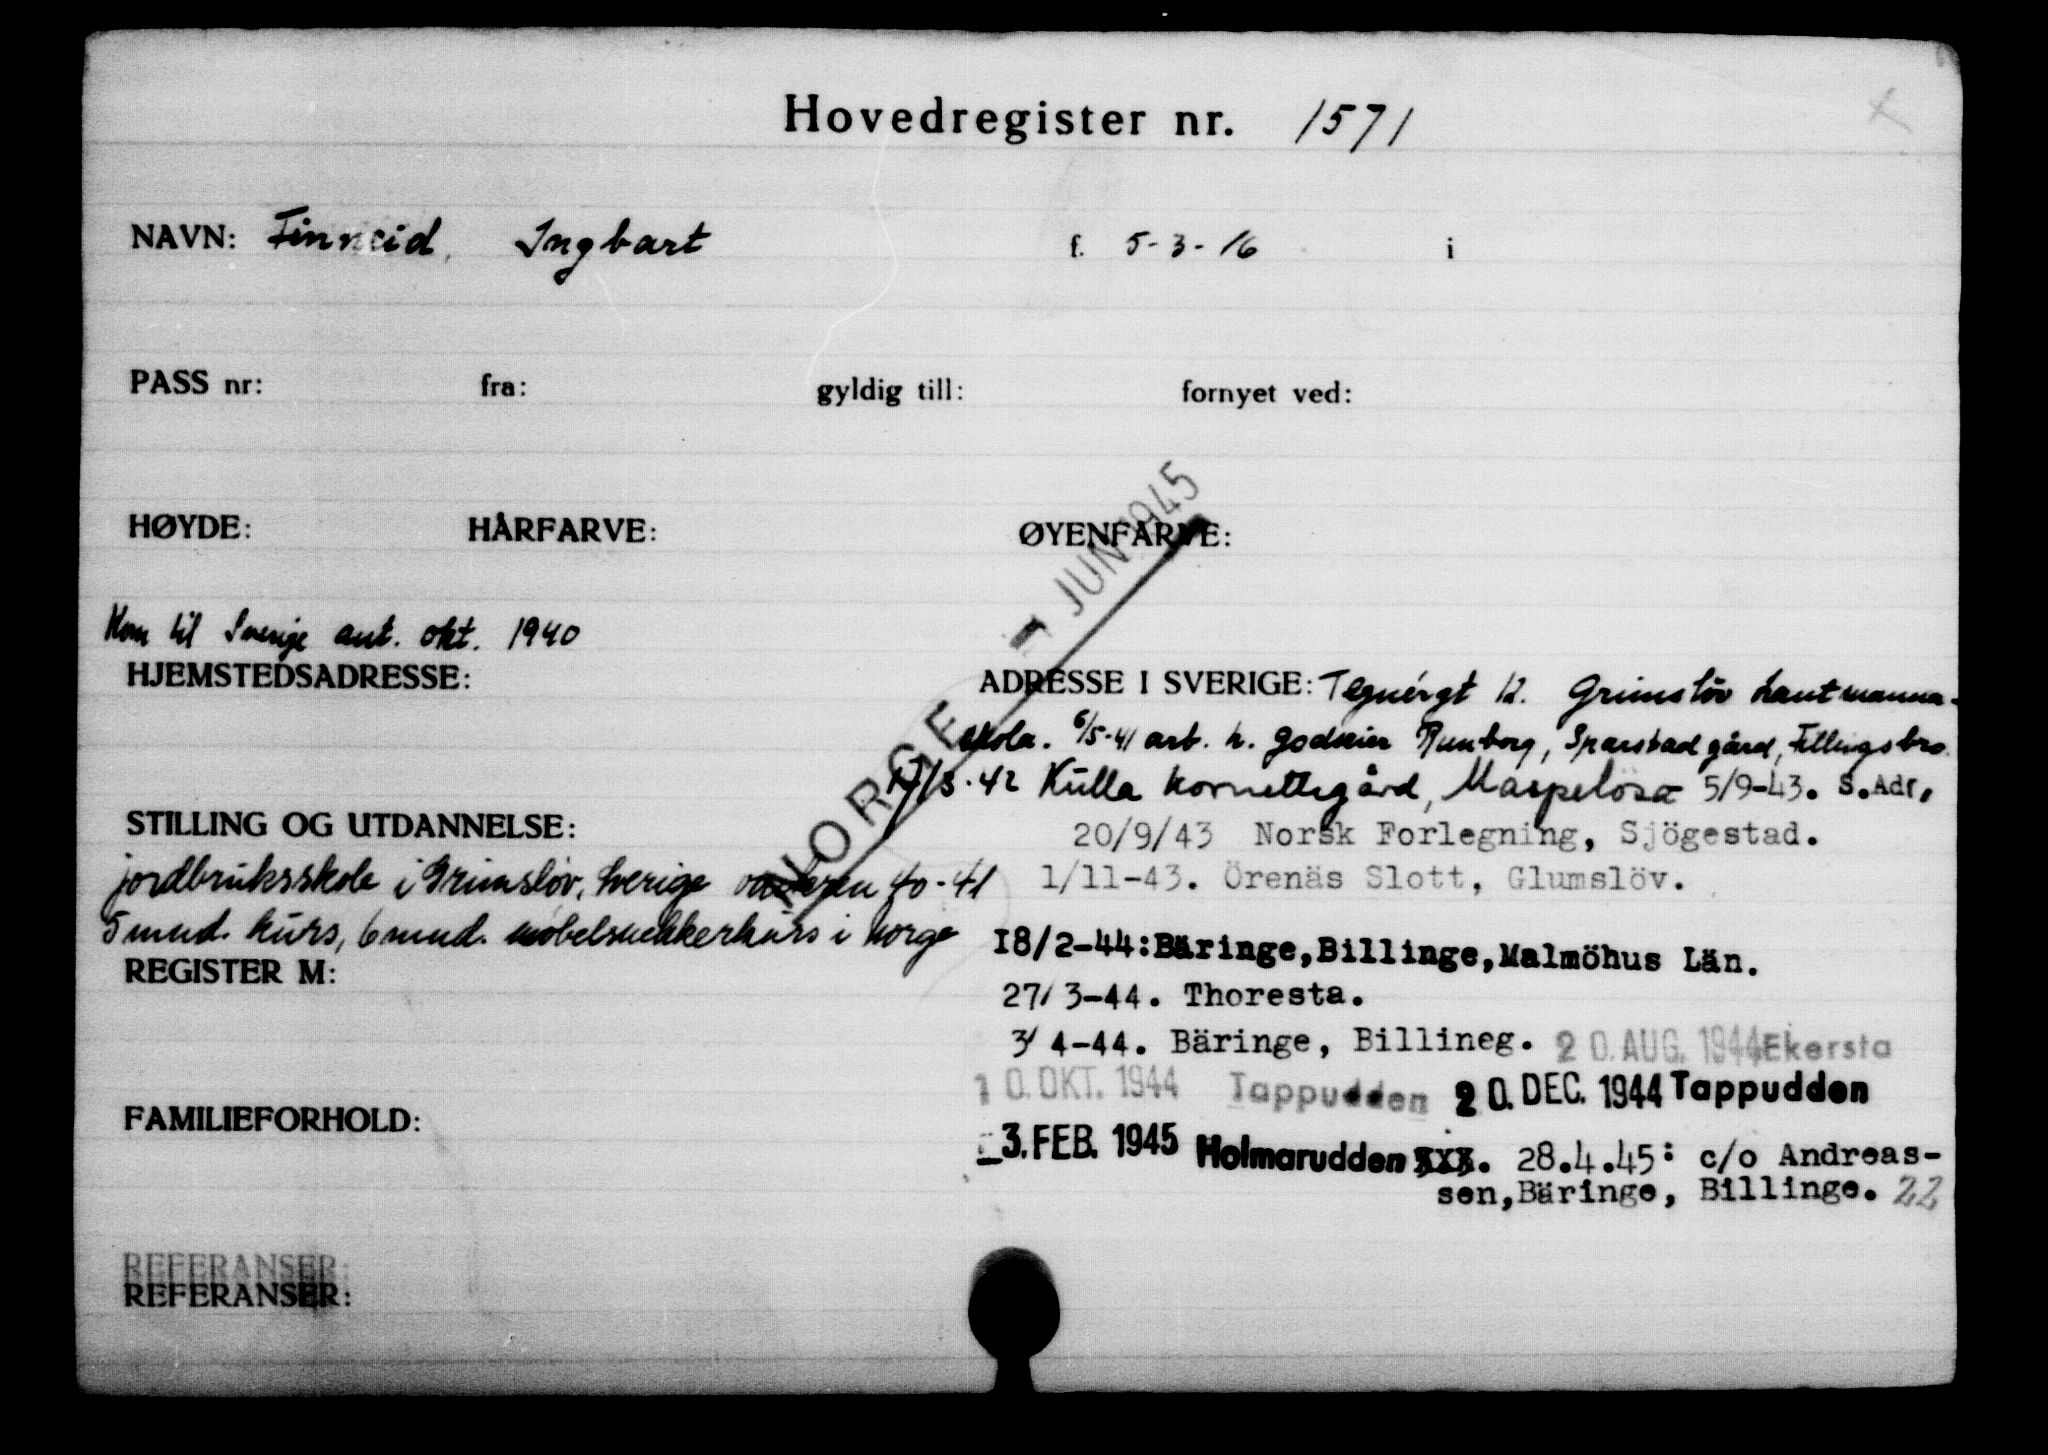 Hovedregister nr. 1571
NAVN: Finneid, Ingbart f. 5-3-16 i
PASS nr: fra: gyldig till: fornyet ved:
HØYDE: HÅRFARVE: ØYENFARVE:
NORGE - JUN 1945
Kom til Sverige ant. okt. 1940
HJEMSTEDSADRESSE:
ADRESSE I SVERIGE: Tegnérgt 12. Grimslöv Lantmanna-
skola. 6/5-41 arb. h. godseier Runborg, Sparstad gård, Fellingsbro.
17/3-42 Kulla Kornettsgård, Maspelösa 5/9-43. S.Adr.
20/9/43 Norsk Forlegning, Sjögestad.
1/11-43. Örenäs Slott, Glumslöv.
18/2-44: Bäringe, Billinge, Malmöhus Län.
27/3-44. Thoresta.
3/4-44. Bäringe, Billineg. 20. AUG. 1944 Ekersta
10. OKT. 1944 Tappudden 20. DEC. 1944 Tappudden
_3. FEB. 1945 Holmarudden xxx. 28.4.45: c/o Andreas-
sen, Bäringe, Billinge. 22
STILLING OG UTDANNELSE:
jordbruksskole i Grimslöv, Sverige vinteren 40-41
5 mnd. kurs, 6 mnd. møbelsnekkerkurs i Norge
REGISTER M:
FAMILIEFORHOLD:
REFERANSER:
REFERANSER: